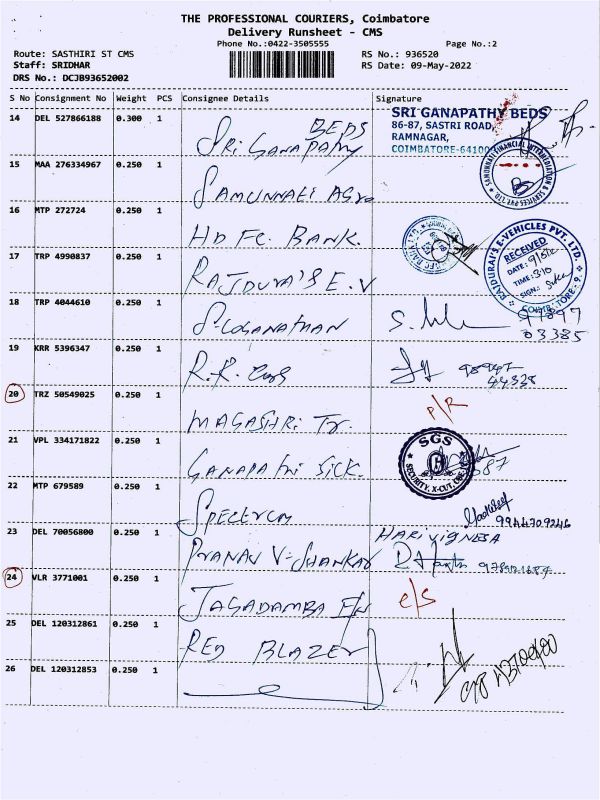 THE PROFESSIONAL COURIERS, Coimbatore
Delivery Runsheet - CMS
Phone No.:0422-3505555
Page No.:2
Route: SASTHIRI ST CMS
RS No.: 936520
Staff: SRIDHAR
RS Date: 09-May-2022
DRS No.: DCJB93652002
S No Consignment No Weight PCS Consignee Details Signature
14 DEL 527866188 0.300 1
BEDS
SRI GANAPATHY
SRI GANAPATHY BEDS
86-87, SASTRI ROAD,
RAMNAGAR,
COIMBATORE-64100
15 MAA 276334967 0.250 1
SAMUNNATI AGRO
SAMUNNATI FINANCIAL INTERMEDIATION & SERVICES PVT LTD
16 MTP 272724 0.250 1
HDFC BANK.
17 TRP 4990837 0.250 1
RAJDURAI'S E.V
RAJDURAI'S E-VEHICLES PVT. LTD.
RECEIVED
DATE:
TIME: 3:10
SIGN:
COIMBATORE-9.
18 TRP 4044610 0.250 1
S-LOGANATHAN
03385
19 KRR 5396347 0.250 1
R.R.
44328
20 TRZ 50549025 0.250 1
MAGASHRI Tr.
P/R
21 VPL 334171822 0.250 1
GANAPATHI SILK.
SGS
SECURITY, X-CUT, CBE
22 MTP 679589 0.250 1
SPECTRUM
9944709246
23 DEL 70056800 0.250 1
PRANAV V-SHANKAR
HARI VIGNESH
24 VLR 3771001 0.250 1
JAGADAMBA F/N
c/s
25 DEL 120312861 0.250 1
RED BLAZER
26 DEL 120312853 0.250 1